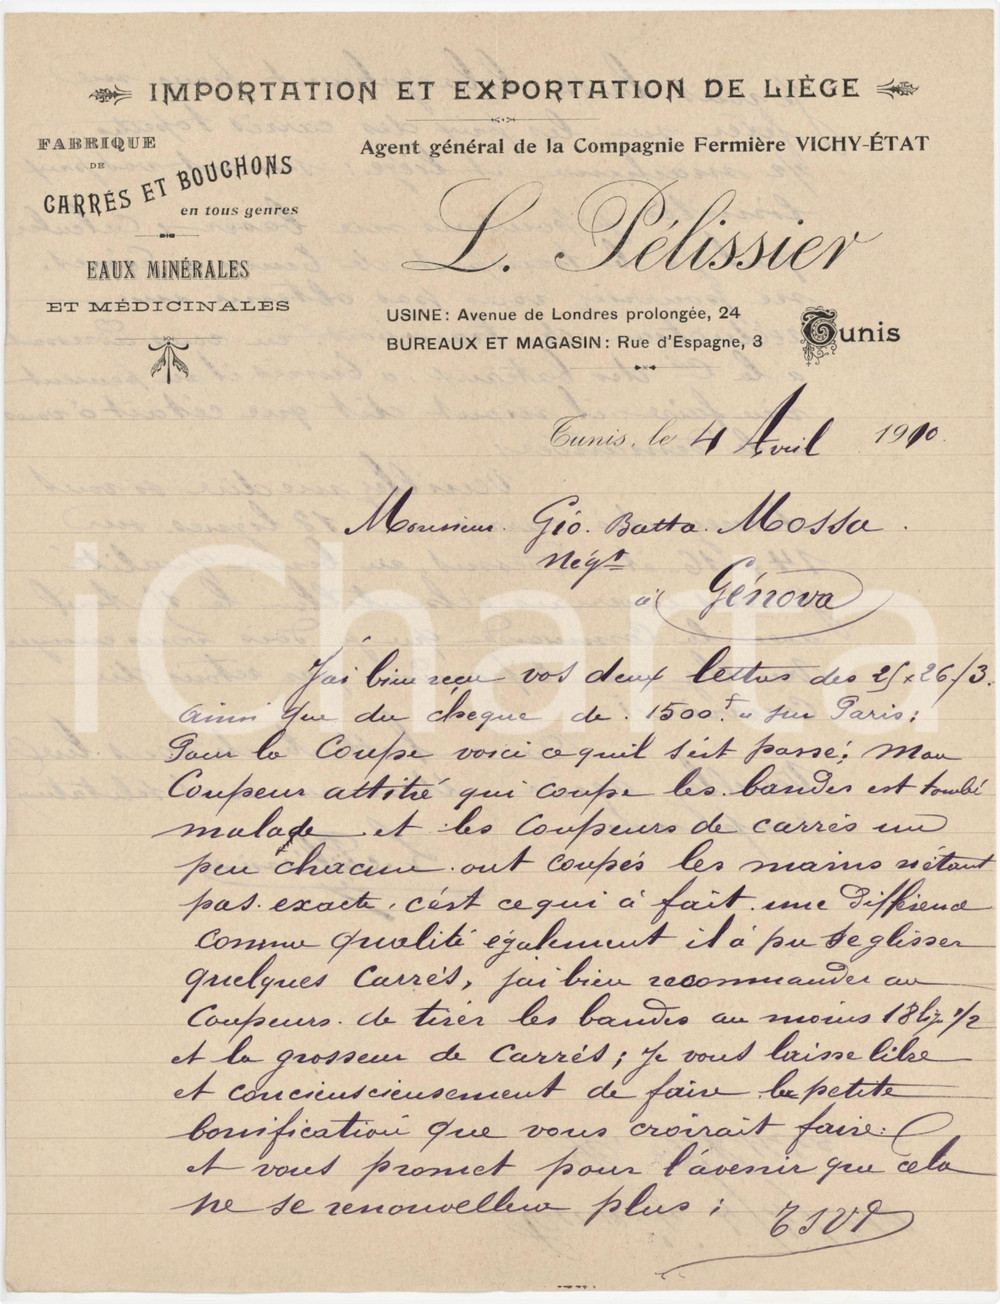 IMPORTATION ET EXPORTATION DE LIÈGE
FABRIQUE
DE
CARRÉS ET BOUCHONS
en tous genres
EAUX MINÉRALES
ET MÉDICINALES
Agent général de la Compagnie Fermière VICHY-ÉTAT
L. Pélissier
USINE: Avenue de Londres prolongée, 24
BUREAUX ET MAGASIN: Rue d'Espagne, 3
Tunis
Tunis, le 4 Avril 1910
Monsieur Gio. Batta. Mossa.
Négt
à Génova
J'ai bien reçu vos deux lettres des 25 x 26/3.
ainsi que du chèque de 1500 f " sur Paris;
Pour la Coupe voici ce quil s'est passé; Mon
Coupeur attitré qui coupe les bandes est tombé
malade et les coupeurs de carrés un
peu chacun ont coupés les mains n'étant
pas exacte, c'est ce qui à fait une différence
comme qualité également il à pu se glisser
quelques carrés, j'ai bien recommander au
Coupeurs de tirér les bandes au moins 18 lig 1/2
et la grosseur de carrés; Je vous laisse libre
et concieuscieusement de faire la petite
bonification que vous croirait faire:
et vous promet pour l'avenir que cela
ne se renouvellera plus; TSVP
iCharta